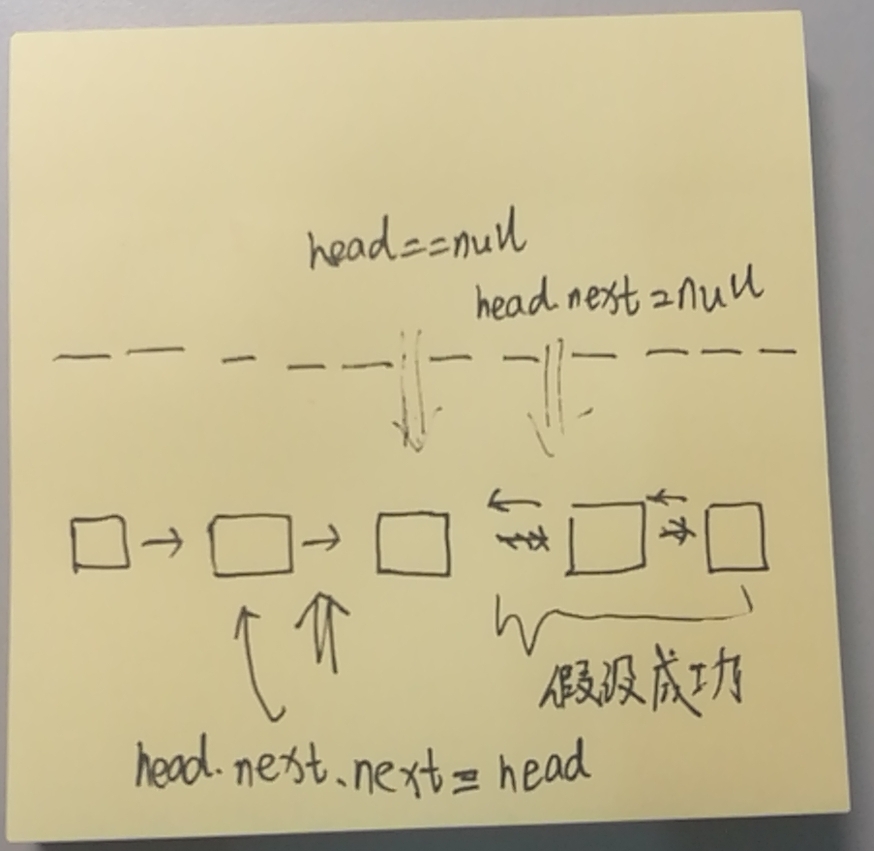 head==null
head.next=null
假设成功
head.next.next=head